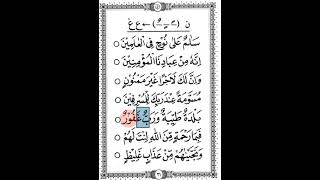 ن (ـًـ ـٍـ ـٌـ) ← ع غ
سَلَامٌ عَلَىٰ نُوحٍ فِي الْعَالَمِيْنَ
اِنَّهُ مِنْ عِبَادِنَا الْمُؤْمِنِيْنَ
وَاِنَّ لَكَ لَاَجْرًا غَيْرَ مَمْنُوْنٍ
مُسَوَّمَةً عِنْدَ رَبِّكَ لِلْمُسْرِفِيْنَ
بَلْدَةٌ طَيِّبَةٌ وَرَبٌّ غَفُوْرٌ
فَبِمَا رَحْمَةٍ مِّنَ اللّٰهِ لِنْتَ لَهُمْ
وَنَجَّيْنٰهُمْ مِّنْ عَذَابٍ غَلِيْظٍ